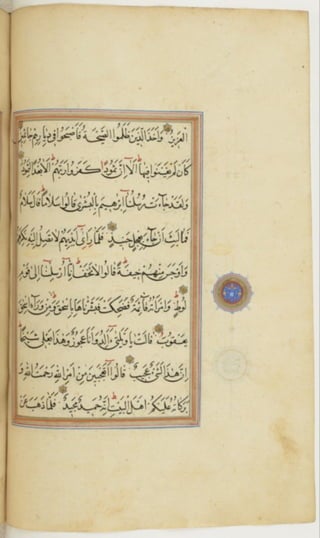 الْعَزِيزُ وَأَخَذَ الَّذِينَ ظَلَمُوا الصَّيْحَةُ فَأَصْبَحُوا فِي دِيَارِهِمْ جَاثِمِينَ
كَأَنْ لَمْ يَغْنَوْا فِيهَا أَلَا إِنَّ ثَمُودَا كَفَرُوا رَبَّهُمْ أَلَا بُعْدًا لِثَمُودَ
وَلَقَدْ جَاءَتْ رُسُلُنَا إِبْرٰهِيمَ بِالْبُشْرٰى قَالُوا سَلَامًا قَالَ سَلَامٌ
فَمَا لَبِثَ أَنْ جَاءَ بِعِجْلٍ حَنِيذٍ فَلَمَّا رَأٰى أَيْدِيَهُمْ لَا تَصِلُ إِلَيْهِ نَكِرَهُمْ
وَأَوْجَسَ مِنْهُمْ خِيفَةً قَالُوا لَا تَخَفْ إِنَّا أُرْسِلْنَا إِلٰى قَوْمِ
لُوطٍ وَامْرَأَتُهُ قَائِمَةٌ فَضَحِكَتْ فَبَشَّرْنَاهَا بِإِسْحٰقَ وَمِنْ وَرَاءِ إِسْحٰقَ
يَعْقُوبَ قَالَتْ يَا وَيْلَتٰى ءَأَلِدُ وَأَنَا عَجُوزٌ وَهٰذَا بَعْلِي شَيْخًا
إِنَّ هٰذَا لَشَيْءٌ عَجِيبٌ قَالُوا أَتَعْجَبِينَ مِنْ أَمْرِ اللّٰهِ رَحْمَتُ اللّٰهِ وَ
بَرَكَاتُهُ عَلَيْكُمْ أَهْلَ الْبَيْتِ إِنَّهُ حَمِيدٌ مَجِيدٌ فَلَمَّا ذَهَبَ عَنْ